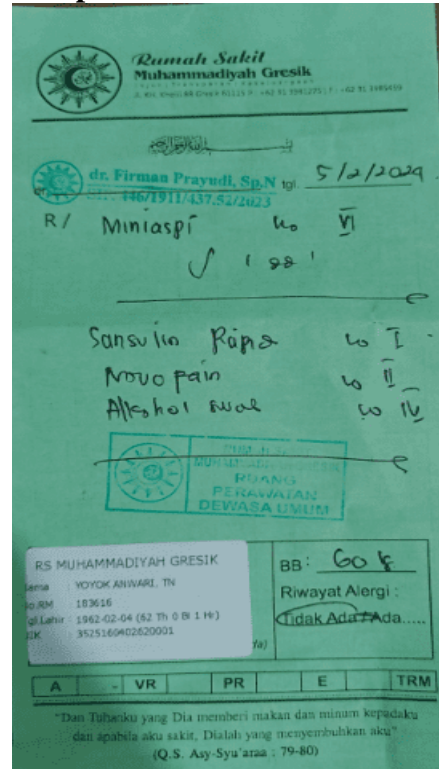 Rumah Sakit
Muhammadiyah Gresik
dr. Firman Prayudi, Sp.N tgl. 5/2/2024
446/1911/437.52/2023
R/ Miniaspi No VI
S 1 dd 1
Sansulin Rapid No I
Novo pain No II
Alkohol swab No IV
RUMAH SAKIT
MUHAMMADIYAH GRESIK
RUANG
PERAWATAN
DEWASA UMUM
RS MUHAMMADIYAH GRESIK
Nama : YOYOK ANWARI, TN
No.RM : 183616
Tgl.Lahir : 1962-02-04 (62 Th 0 Bl 1 Hr)
NIK : 3525160402620001
BB : 60 k
Riwayat Alergi :
Tidak Ada / Ada.....
A VR PR E TRM
"Dan Tuhanku yang Dia memberi makan dan minum kepadaku
dan apabila aku sakit, Dialah yang menyembuhkan aku"
(Q.S. Asy-Syu'araa : 79-80)